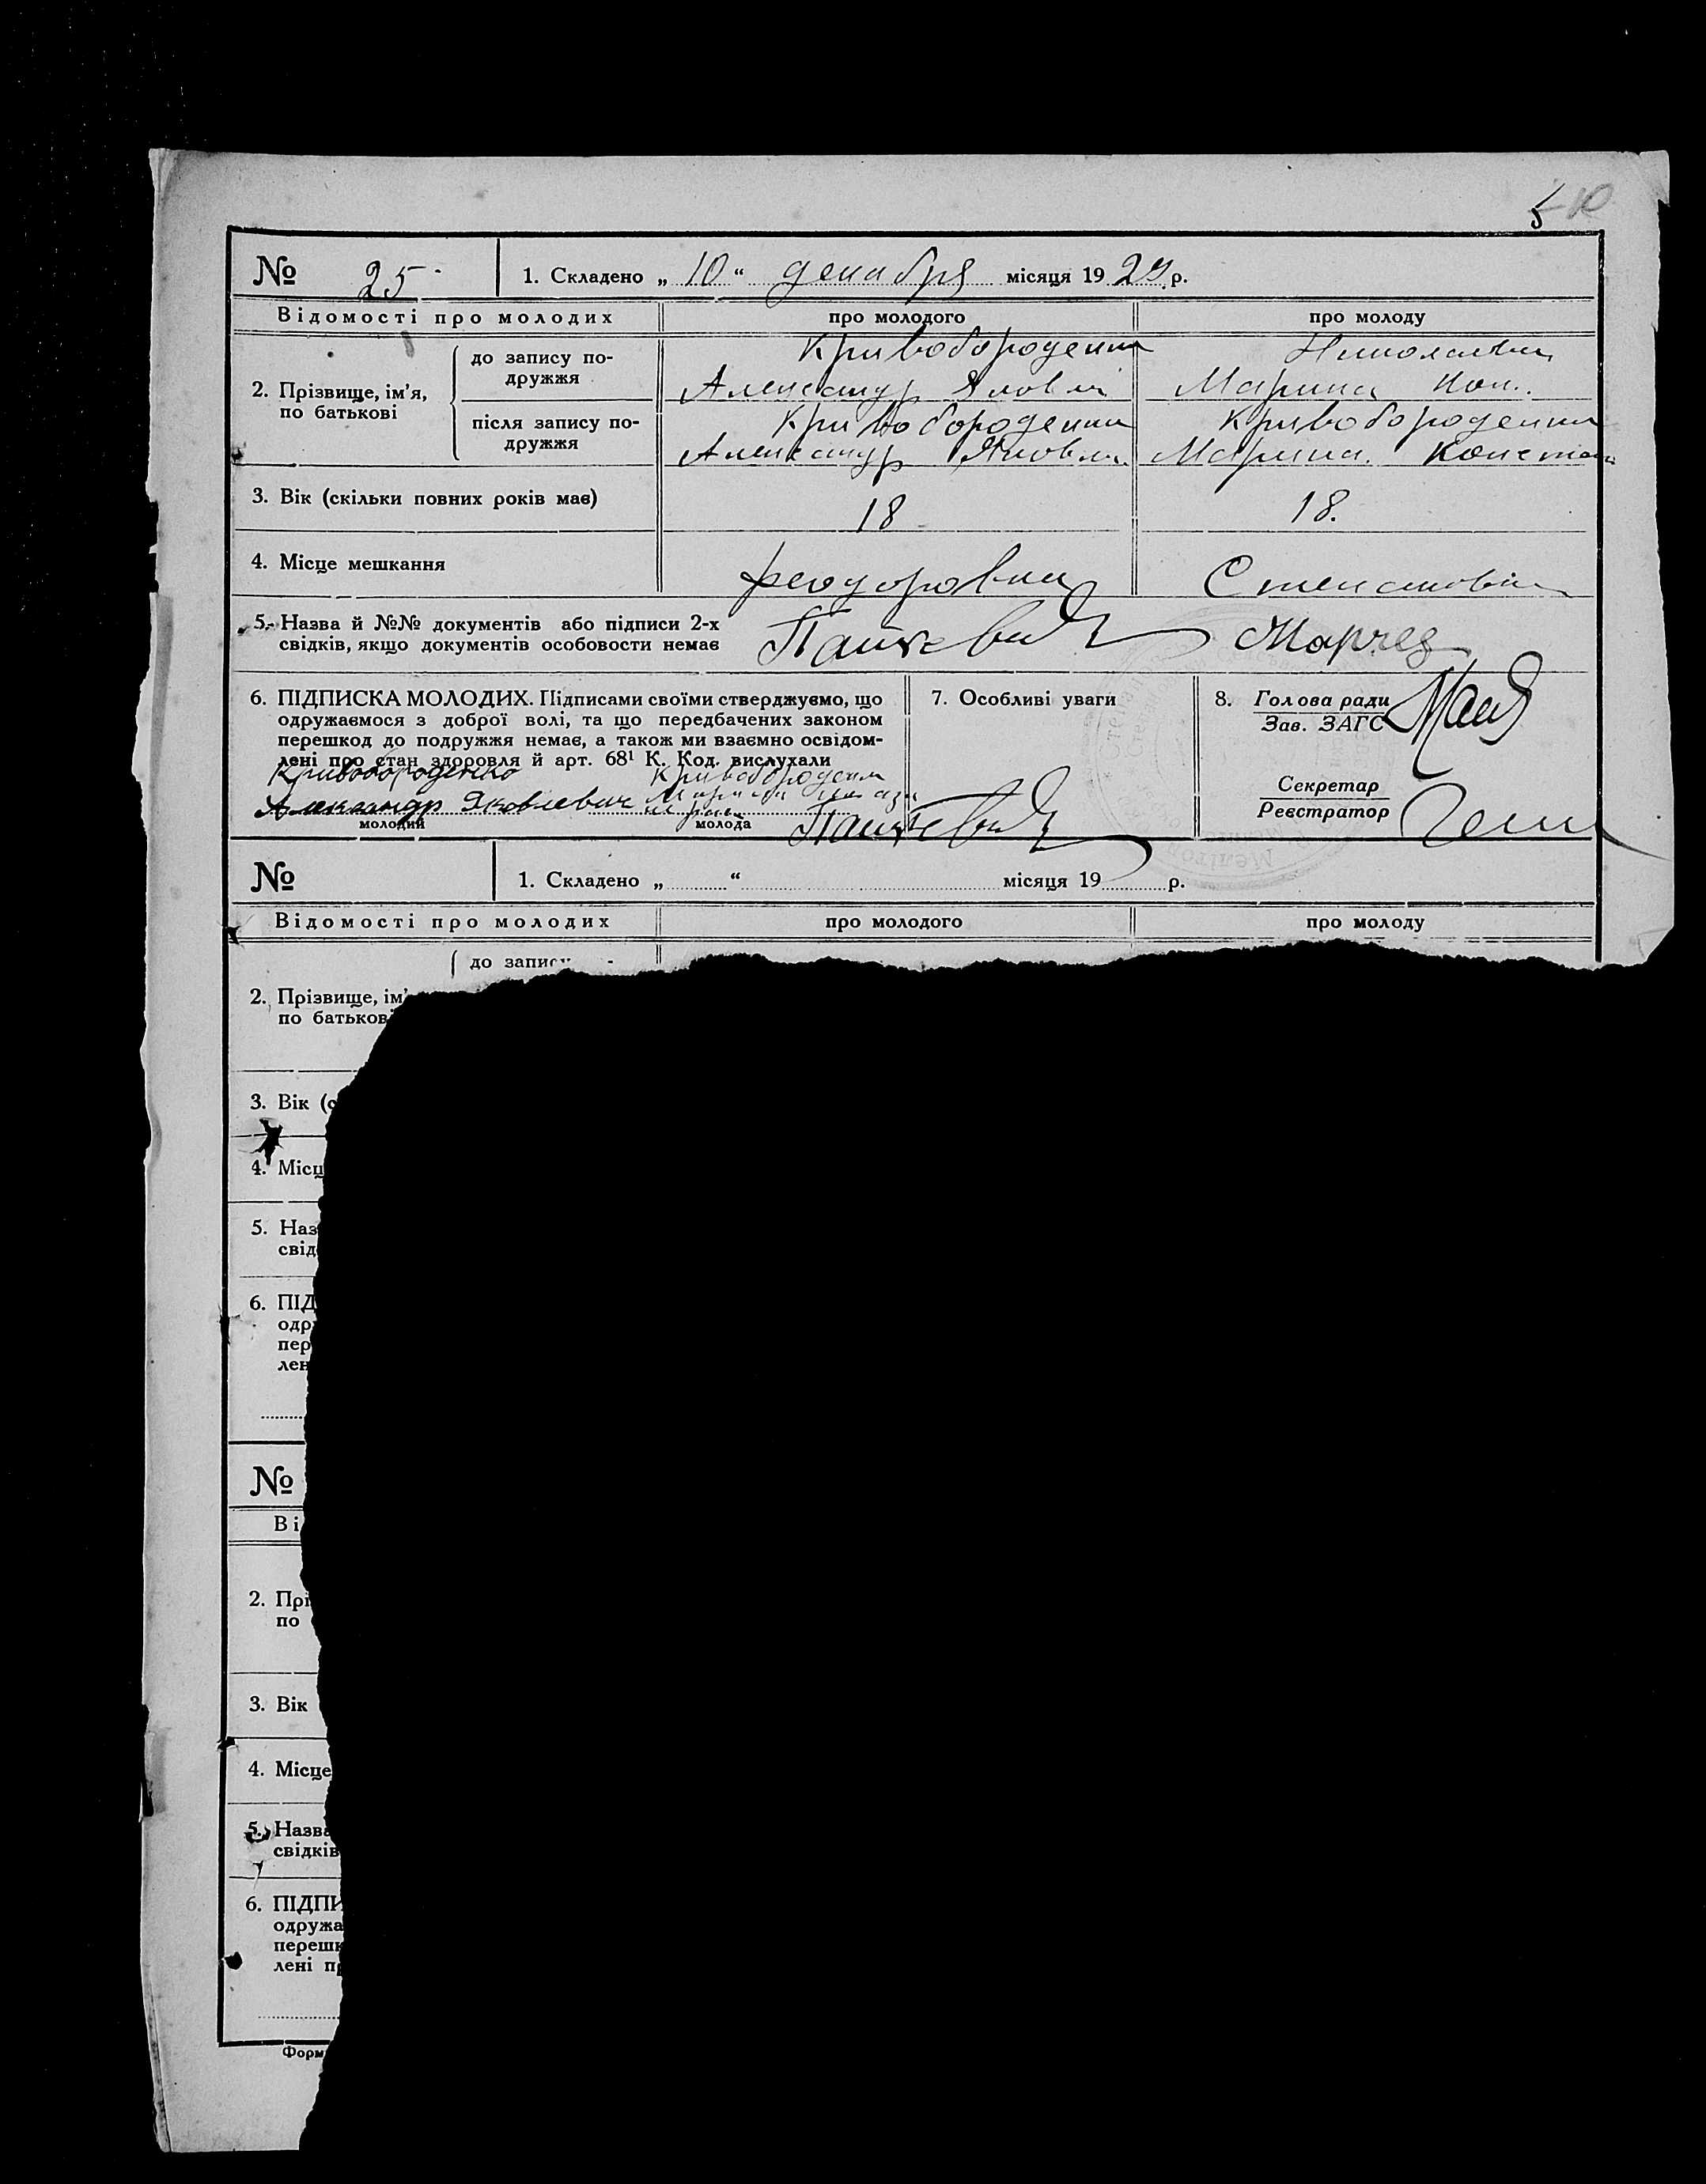 5 10
№ 25 1. Складено „ 10 “ декабря місяця 19 29 р.
Відомості про молодих про молодого про молоду
2. Прізвище, ім’я, по батькові
до запису по-
дружжя
Кривобороденко
Александр Яковлев
Николаевна
Марина Кон.
після запису по-
дружжя
Кривобороденко
Александр Яковлев
Кривобороденко
Марина. Констан
3. Вік (скільки повних років має) 18 18.
4. Місце мешкання Феодоровка Степановка
5. Назва й №№ документів або підписи 2-х
свідків, якщо документів особовости немає
6. ПІДПИСКА МОЛОДИХ. Підписами своїми стверджуємо, що
одружаємося з доброї волі, та що передбачених законом
перешкод до подружжя немає, а також ми взаємно освідом-
лені про стан здоровля й арт. 68¹ К. Код. вислухали
Кривобороденко
Александр Яковлевич
молодий
Кривобороденко
молода
7. Особливі уваги
8. Голова ради
Зав. ЗАГС
Секретар
Реєстратор
№ 1. Складено „ “ місяця 19 р.
Відомості про молодих про молодого про молоду
до запису
2. Прізвище, ім’
по батькові
3. Вік (с
4. Місц
5. Наз
свід
6. ПІД
одр
пер
лен
№
Ві
2. Прі
по
3. Вік
4. Місце
5. Назва
свідків
6. ПІДПИ
одружа
перешк
лені п
Форм